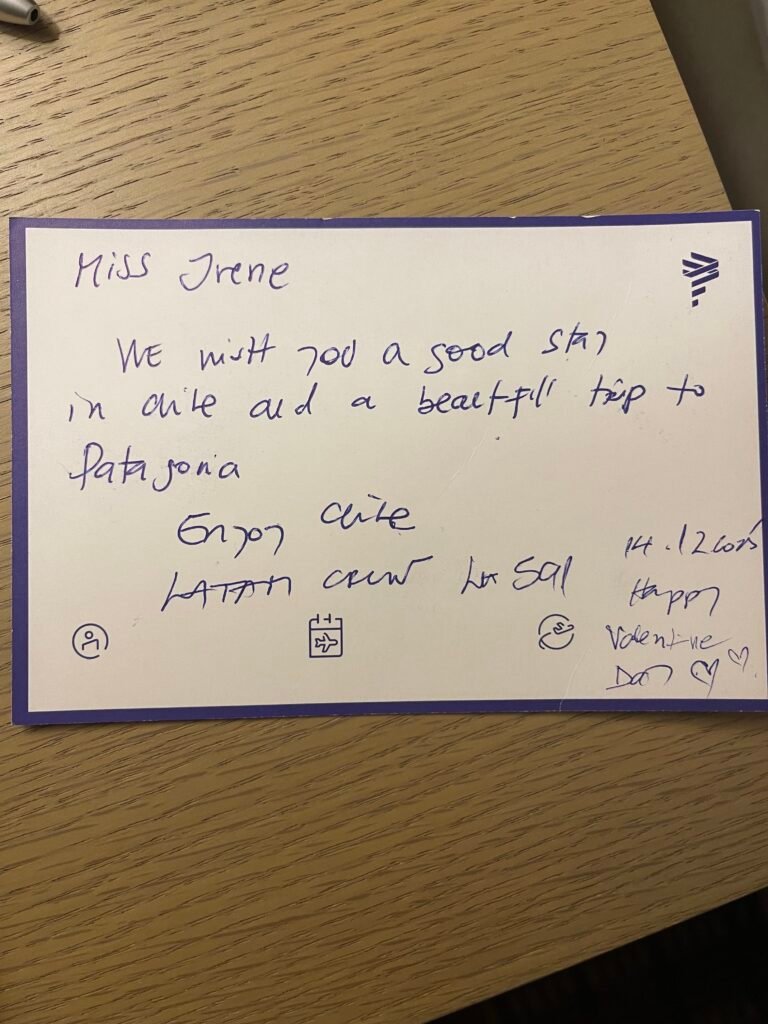 Miss Irene
WE wish you a good stay
in chile and a beautiful trip to
Patagonia
Enjoy chile
LATAM CREW LA 591
Happy
Valentine
Day